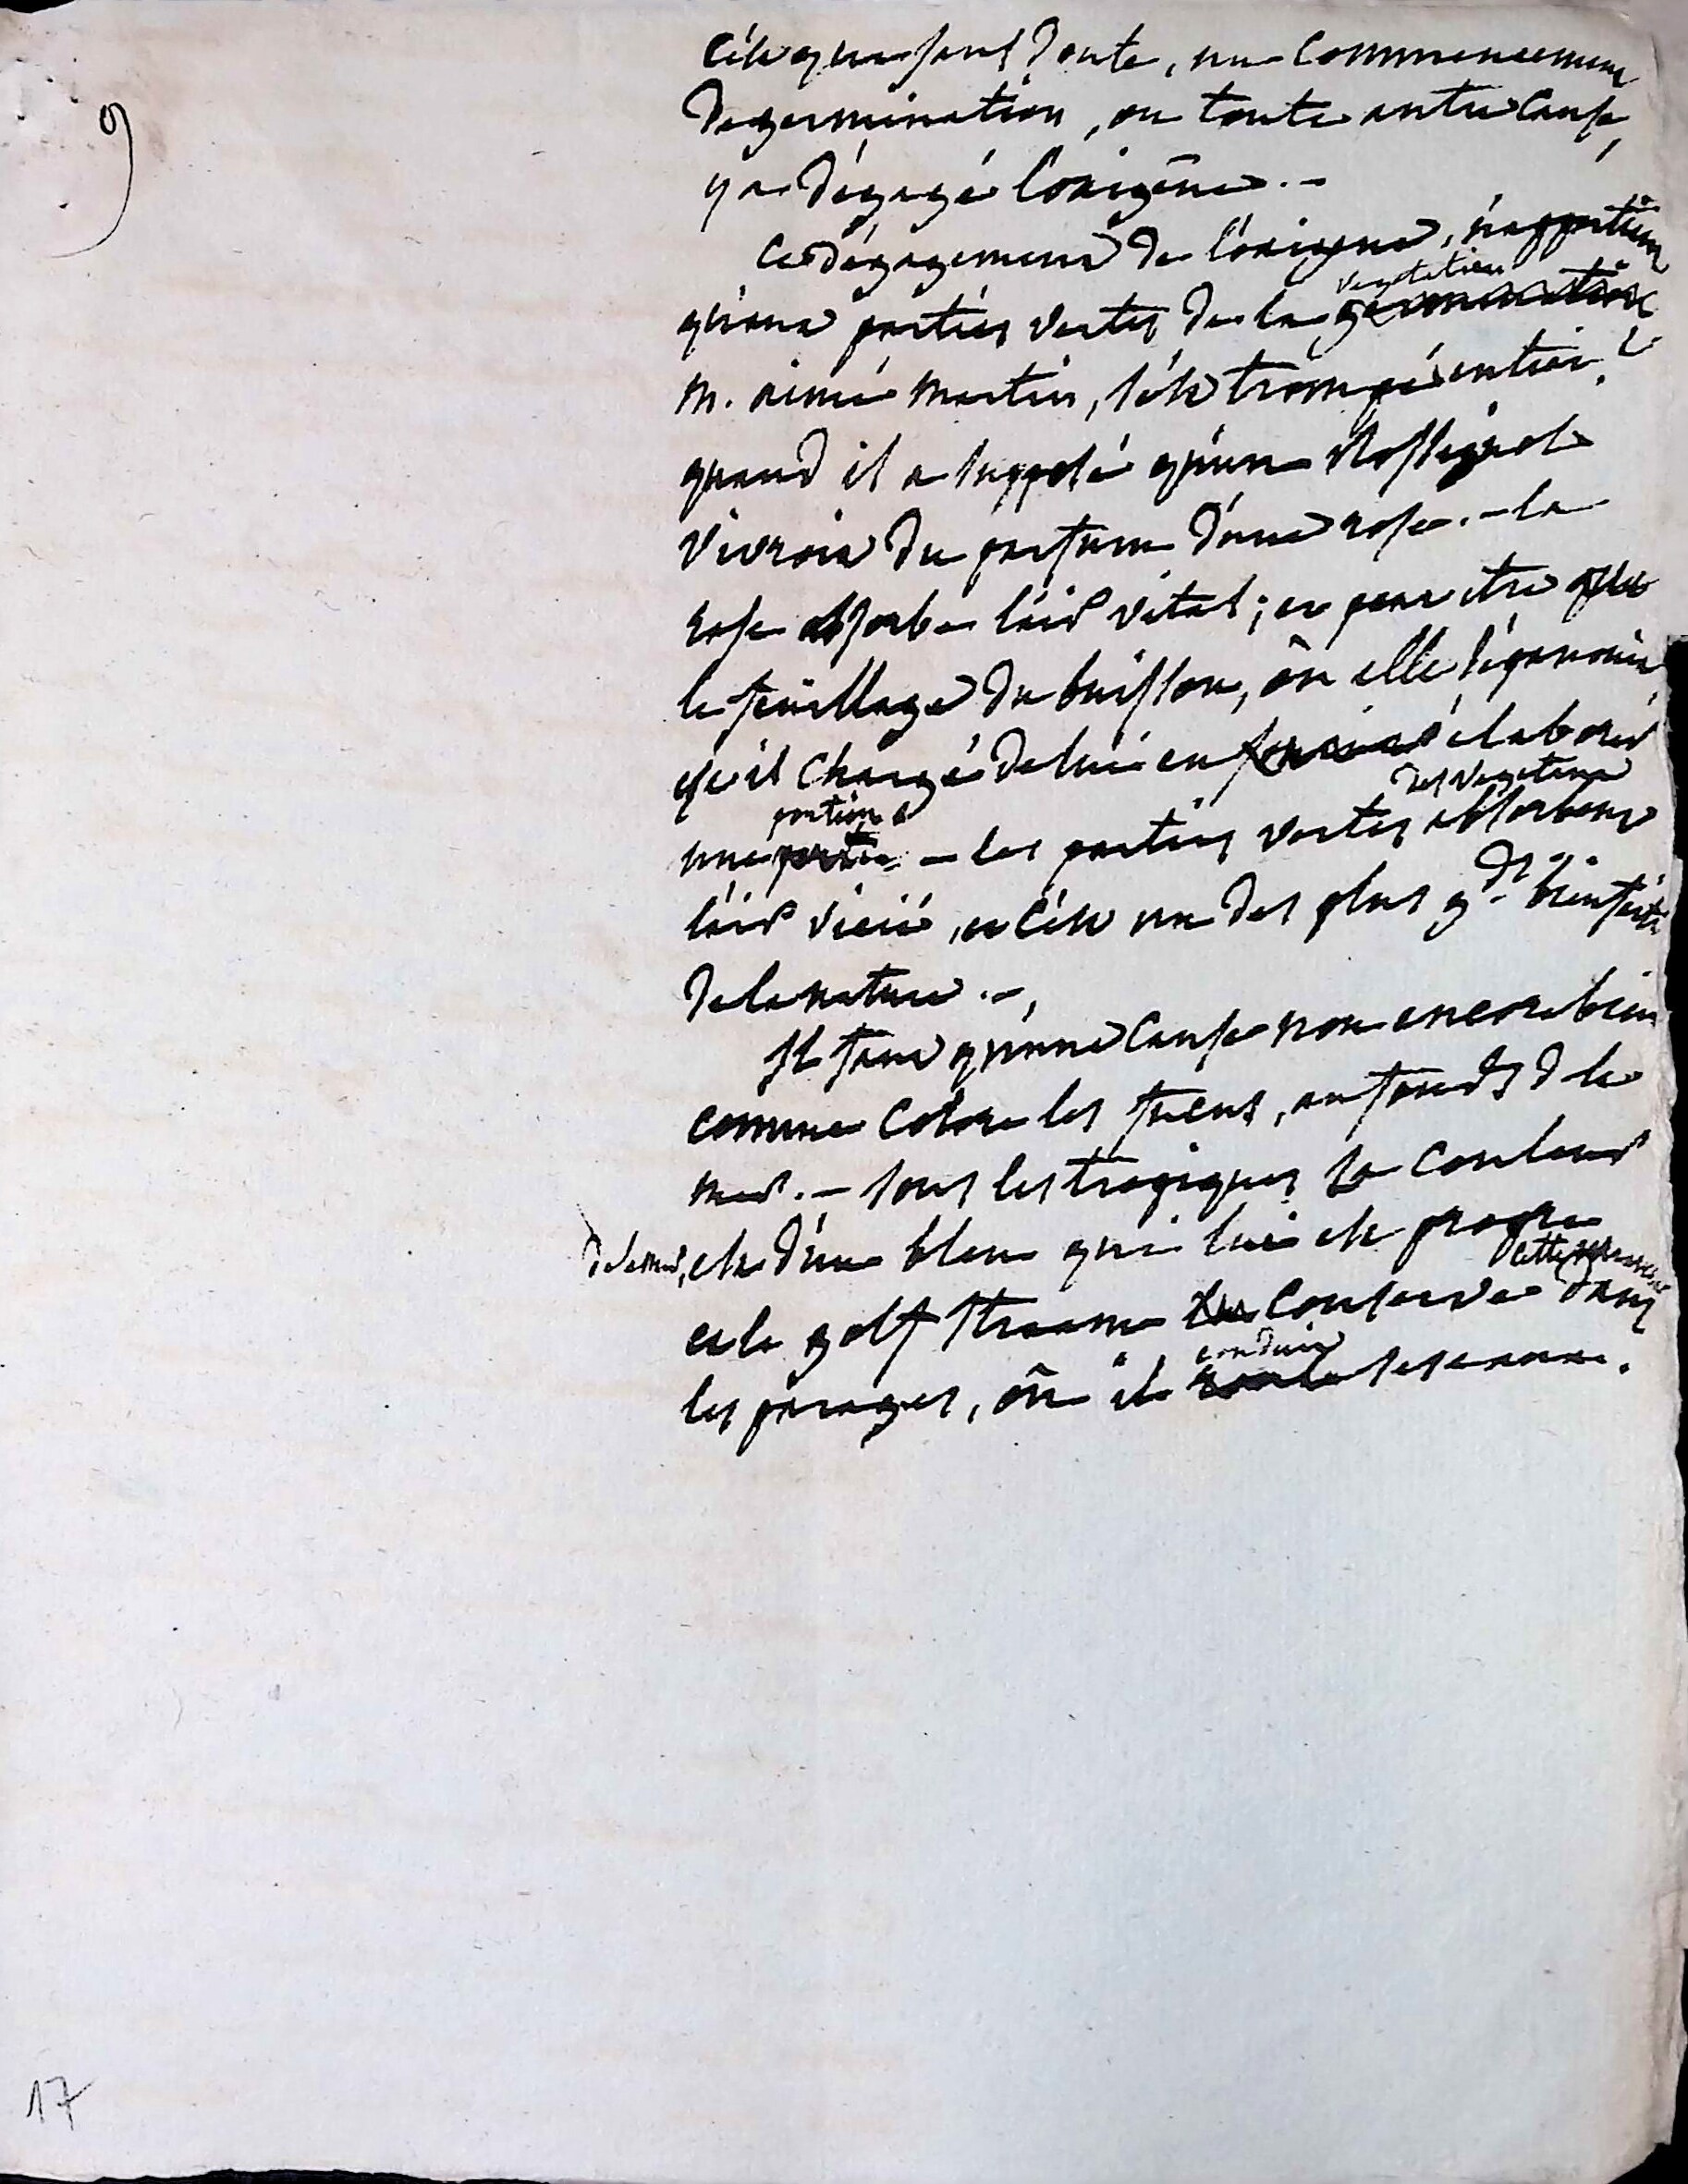 9
C'est que sans doute, un commencement
de germination, ou toute autre cause,
y a dégagé l'oxigêne. -
Ce dégagement de l'oxigene, n'appartient
qu'aux parties vertes de la germination
vegetation
m. aimé martin, s'est trompé entier.t
quand il a supposé qu'un Rossignol
vivroit du parfum d'une rose. - la
rose absorbe l'air vital ; et peut etre que
le feuillage du buisson, où elle s'épanouit
qu'il chargé de lui en élaborer
une partie
portion
- les parties vertes des vegetaux absorbent
l'air vicié, et c'est un des plus g.ds bienfaits
de la nature. -
Il faut qu'une cause non encore bien
connue colore les fucus, au fonds de la
mer. - sous les tropiques la couleur
de la mer, est d'un bleu qui lui est propre
et le golf stream conserve cette dans
les parages, où il roule
conduit
ses eaux.
17